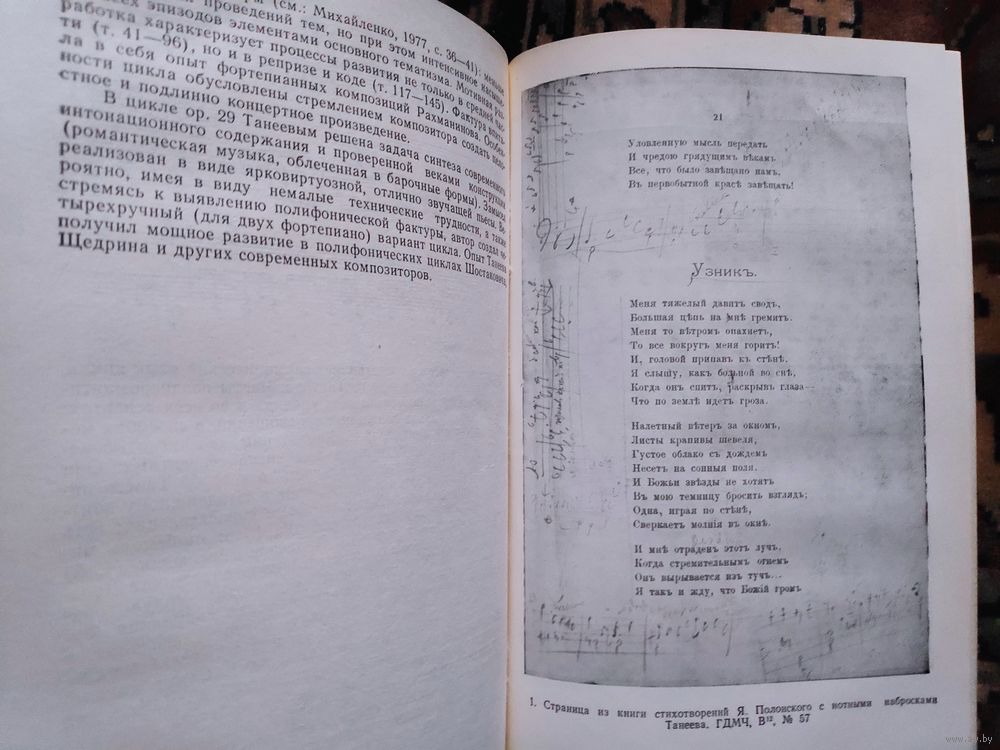 (см.: Михайленко, 1977, с. 36—41): меньше
проведений тем, но при этом интенсивное насыще-
всех эпизодов элементами основного тематизма. Мотивная раз-
работка характеризует процессы развития не только в средней час-
ти (т. 41—96), но и в репризе и коде (т. 117—145). Фактура впита-
ла в себя опыт фортепианных композиций Рахманинова. Особен-
ности цикла обусловлены стремлением композитора создать цело-
стное и подлинно концертное произведение.
В цикле ор. 29 Танеевым решена задача синтеза современного
интонационного содержания и проверенной веками конструкции
(романтическая музыка, облеченная в барочные формы). Замысел
реализован в виде ярковиртуозной, отлично звучащей пьесы. Ве-
роятно, имея в виду немалые технические трудности, а также
стремясь к выявлению полифонической фактуры, автор создал че-
тырехручный (для двух фортепиано) вариант цикла. Опыт Танеева
получил мощное развитие в полифонических циклах Шостаковича,
Щедрина и других современных композиторов.
21
Уловленную мысль передать
И чредою грядущимъ вѣкамъ
Все, что было завѣщано намъ,
Въ первобытной красѣ завѣщать!
Узникъ.
Меня тяжелый давитъ сводъ,
Большая цѣпь на мнѣ гремитъ.
Меня то вѣтромъ опахнетъ,
То все вокругъ меня горитъ!
И, головой припавъ къ стѣнѣ,
Я слышу, какъ больной во снѣ,
Когда онъ спитъ, раскрывъ глаза—
Что по землѣ идетъ гроза.
Налетный вѣтеръ за окномъ,
Листы крапивы шевеля,
Густое облако съ дождемъ
Несетъ на сонныя поля.
И Божьи звѣзды не хотятъ
Въ мою темницу бросить взглядъ;
Одна, играя по стѣнѣ,
Сверкаетъ молнія въ окнѣ.
И мнѣ отраденъ этотъ лучъ,
Когда стремительнымъ огнемъ
Онъ вырывается изъ тучъ...
Я такъ и жду, что Божій громъ
1. Страница из книги стихотворений Я. Полонского с нотными набросками
Танеева. ГДМЧ, В¹², № 57